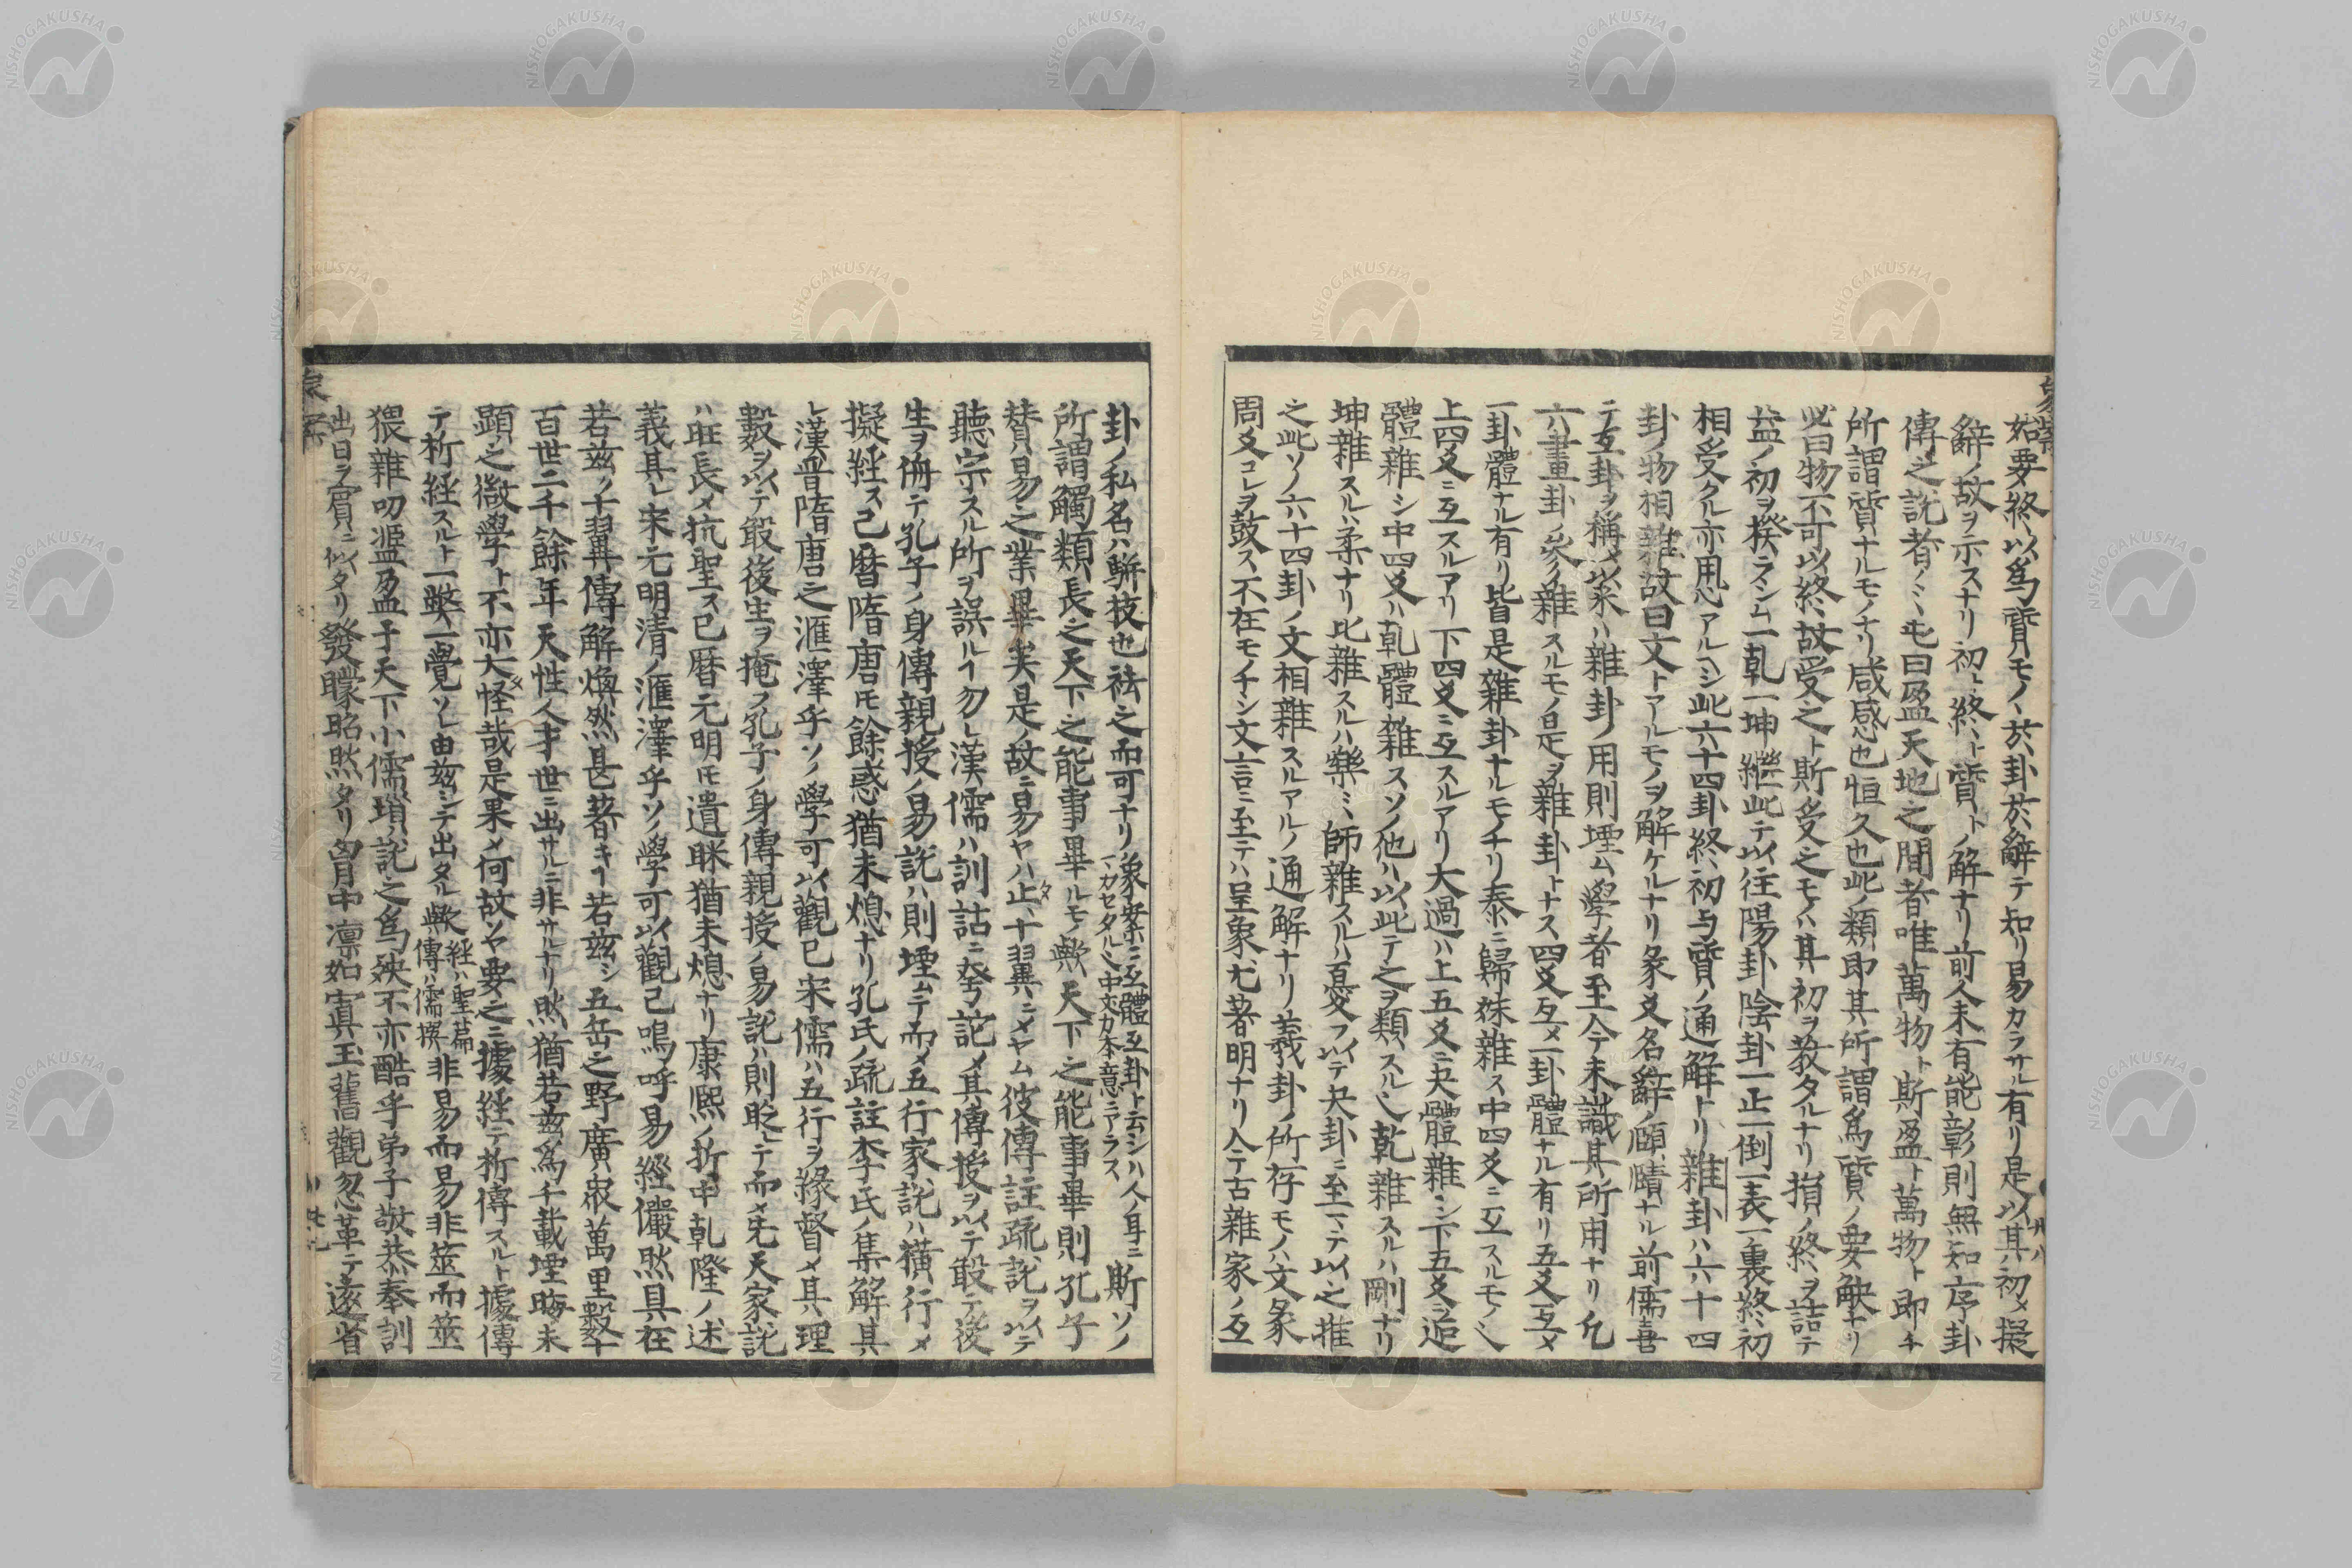 始要終以爲質モノハ於卦於辭テ知リ易カラサル有リ是以其初メ擬
辭ノ故ヲ示スナリ初ト終ト質トノ解ナリ前人未有能彰則無知序卦
傳之説者ノミ屯曰盈天地之間者唯萬物ト斯盈ト萬物ト即チ
所謂質ナルモノナリ咸感也恒久也此ノ類即其所謂爲質ノ要觖ナリ
必曰物不可以終故受之ト斯受之モノハ其初ヲ教タルナリ損ノ終ヲ詰テ
益ノ初ヲ揆ラシム一乾一坤繼此テ以往陽卦陰卦一正一倒一表一裏終初
相受クル亦用心アルヘシ此六十四卦終初与質ノ通解トリ雜卦ハ六十四
卦ノ物相雜故曰文トアルモノヲ解ケルナリ彖爻名辭ノ頤賾ナル前儒喜
テ互卦ヲ稱メ以釆ハ雜卦ノ用則堙ム學者至今テ未識其所用ナリ凢
六畫卦ノ爻ノ雜スルモノ是ヲ雜卦トナス四爻互メ一卦體ナル有リ五爻互メ
一卦體ナル有リ皆是雜卦ナルモノナリ泰ニ歸妹雜ス中四爻ニ互スルモノ也
上四爻ニ互スルアリ下四爻ニ互スルアリ大過ハ上五爻ニ夬體雜シ下五爻ニ姤
體雜シ中四爻ハ乾體雜スソノ他ハ以此テ之ヲ類スル也乾雜スルハ剛ナリ
坤雜スルハ柔ナリ比雜スルハ樂ミ師雜スルハ憂フ以テ夬卦ニ至マテ以之推
之此ソノ六十四卦ノ文相雜スルアルノ通解ナリ義卦ノ所存モノハ文彖
周爻コレヲ鼓ス不在モノナシ文言ニ至テハ呈象尤著明ナリ今テ古雜家ノ互
卦ノ私名ハ騈技也祛之而可ナリ象案ニ互體互卦ト云シハ人ノ耳ニマカセタル也中爻カ本意ニアラス斯ソノ
所謂觸類長之天下之能事畢ルモノ歟天下之能事畢則孔子
賛易之業畢矣是ノ故ニ易ヤハ止タ十翼ニメヤム彼傳註疏説ヲ以テ
聽宗スル所ヲ誤ルイ勿レ漢儒ハ訓詁ニ発詫メ其傳授ヲ以テ敢テ後
生ヲ侮テ孔子ノ身傳親授ノ易説ハ則堙ムテ而メ五行家説ハ横行メ
擬経ス已曆隋唐モ餘惑猶未熄ナリ孔氏ノ疏註李氏ノ集解其
レ漢晋隋唐之滙澤乎ソノ學可以觀已宋儒ハ五行ヲ縁督メ其理
數ヲ以テ敢後生ヲ掩フ孔子ノ身傳親授ノ易説ハ則貶レテ而メ先天家説
ハ旺長メ抗聖ス已曆元明モ遺眯猶未熄ナリ康熙ノ折中乾隆ノ述
義其レ宋元明清ノ滙澤乎ソノ學可以觀已嗚呼易經儼然具在
若玆ノ十翼傳解煥然甚著キイ若玆シ五岳之野廣衆萬里數千
百世二千餘年天性人才世ニ出サルニ非サルナリ然猶若玆爲千載堙晦未
顯之徽學ト不亦大怪哉是果メ何故ソヤ要之ニ據経テ析傳スルト據傳
テ析経スルト一弊一覺ソレ由玆ニテ出タル歟経ハ聖篇傳ハ儒撰非易而易非筮而筮
猥雜叨濫盈于天下小儒瑣ノ説之爲殃不亦酷乎弟子敬恭奉訓
出日ヲ賓ニ以タリ發矇昭然タリ胷中凛如寘玉舊觀忽革テ遂省